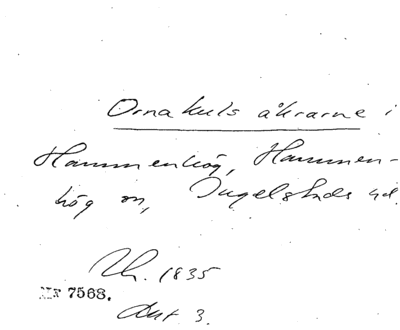 Ornakuls åkrarne i
Hammenhög, Hammen-
hög sn, Ingelstads hd.
1835
MF 7568.
Akt 3.